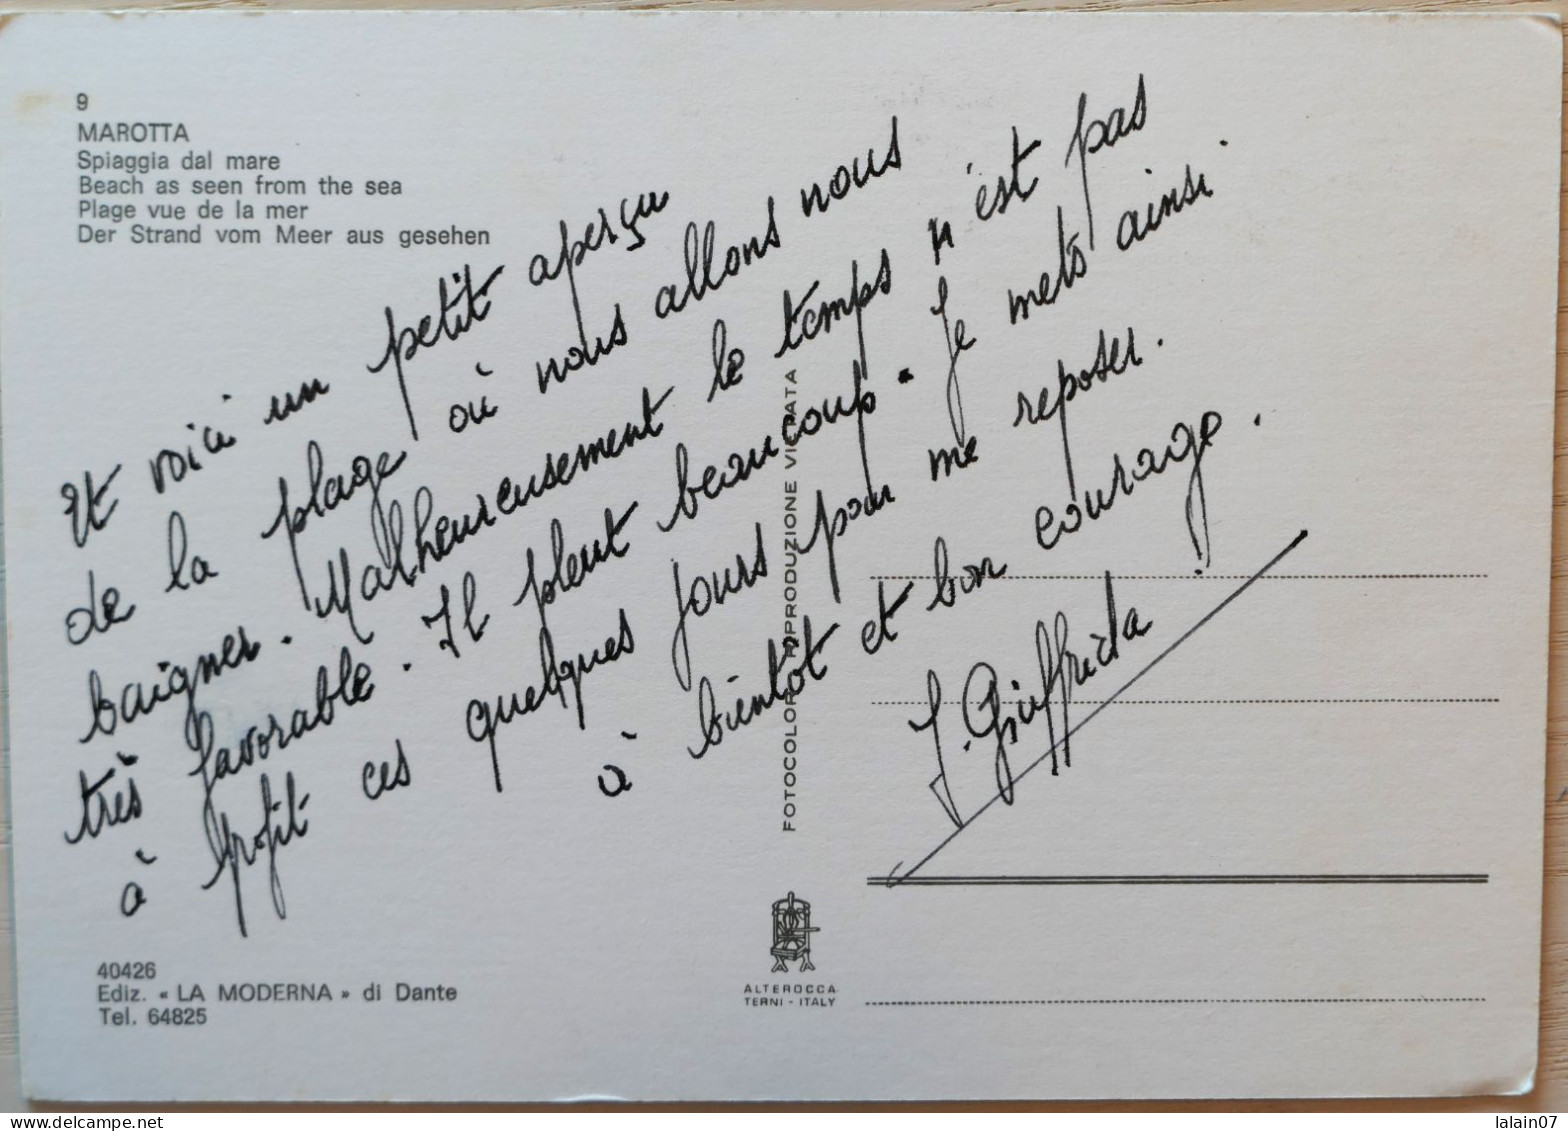 9
MAROTTA
Spiaggia dal mare
Beach as seen from the sea
Plage vue de la mer
Der Strand vom Meer aus gesehen
Et voici un petit aperçu
de la plage où nous allons nous
baigner. Malheureusement le temps n'est pas
très favorable. Il pleut beaucoup. Je mets ainsi
à profit ces quelques jours pour me reposer.
à bientôt et bon courage.
J. Giuffrida
FOTOCOLOR RIPRODUZIONE VIETATA
40426
Ediz. « LA MODERNA » di Dante
Tel. 64825
ALTEROCCA
TERNI - ITALY
delcampe.net
lalain07